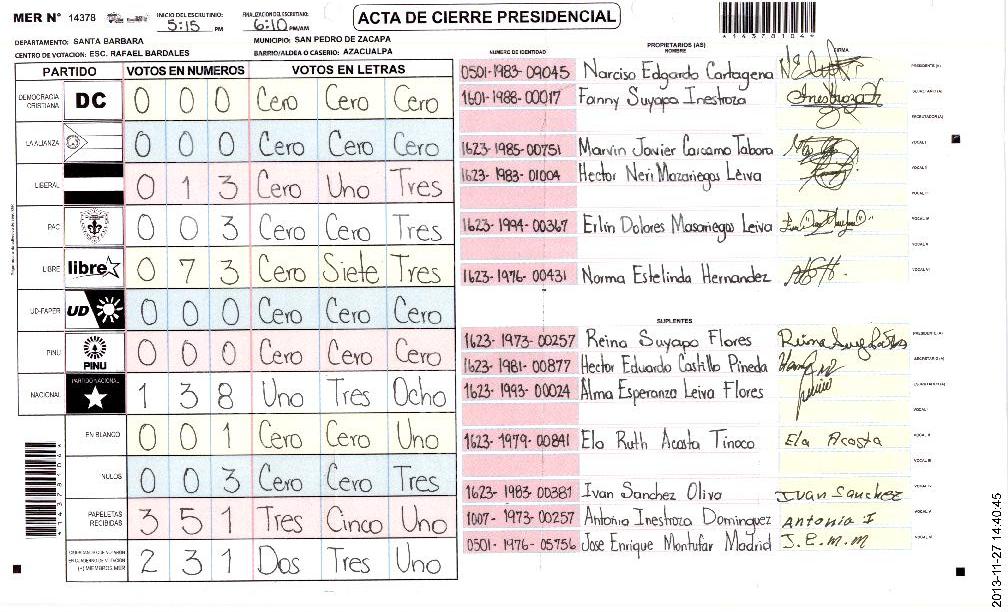 MER N° 14378
INICIO DEL ESCRUTINIO: 5:15 PM
FINALIZACION DEL ESCRUTINIO: 6:10 PM/AM
ACTA DE CIERRE PRESIDENCIAL
DEPARTAMENTO: SANTA BARBARA
MUNICIPIO: SAN PEDRO DE ZACAPA
CENTRO DE VOTACION: ESC. RAFAEL BARDALES
BARRIO/ALDEA O CASERIO: AZACUALPA
PARTIDO VOTOS EN NUMEROS VOTOS EN LETRAS
DEMOCRACIA CRISTIANA DC 0 0 0 Cero Cero Cero
LA ALIANZA 0 0 0 Cero Cero Cero
LIBERAL 0 1 3 Cero Uno Tres
PAC 0 0 3 Cero Cero Tres
LIBRE libre 0 7 3 Cero Siete Tres
UD-FAPER UD 0 0 0 Cero Cero Cero
PINU PINU 0 0 0 Cero Cero Cero
NACIONAL PARTIDO NACIONAL 1 3 8 Uno Tres Ocho
EN BLANCO 0 0 1 Cero Cero Uno
NULOS 0 0 3 Cero Cero Tres
PAPELETAS RECIBIDAS 3 5 1 Tres Cinco Uno
(+) MIEMBROS MER 2 3 1 Dos Tres Uno
PROPIETARIOS (AS)
NUMERO DE IDENTIDAD NOMBRE FIRMA
0501-1983-09045 Narciso Edgardo Cartagena PRESIDENTE (A)
1601-1988-00017 Fanny Suyapa Inestroza SECRETARIO (A)
ESCRUTADOR (A)
1623-1985-00751 Marvin Javier Carcamo Tabora VOCAL I
1623-1983-01004 Hector Neri Mazariegos Leiva VOCAL II
VOCAL III
1623-1994-00367 Erlin Dolores Masariegos Leiva VOCAL IV
VOCAL V
1623-1976-00431 Norma Estelinda Hernandez VOCAL VI
SUPLENTES
1623-1973-00257 Reina Suyapa Flores PRESIDENTE (A)
1623-1981-00877 Hector Eduardo Castillo Pineda SECRETARIO (A)
1623-1993-00024 Alma Esperanza Leiva Flores ESCRUTADOR (A)
VOCAL I
1623-1979-00841 Ela Ruth Acosta Tinoco Ela Acosta VOCAL II
VOCAL III
1623-1983-00381 Ivan Sanchez Oliva Ivan Sanchez VOCAL IV
1007-1973-00257 Antonia Inestroza Dominguez Antonia I VOCAL V
0501-1976-05756 Jose Enrique Montufar Madrid J.E.M.M VOCAL VI
2013-11-27 14:40:45